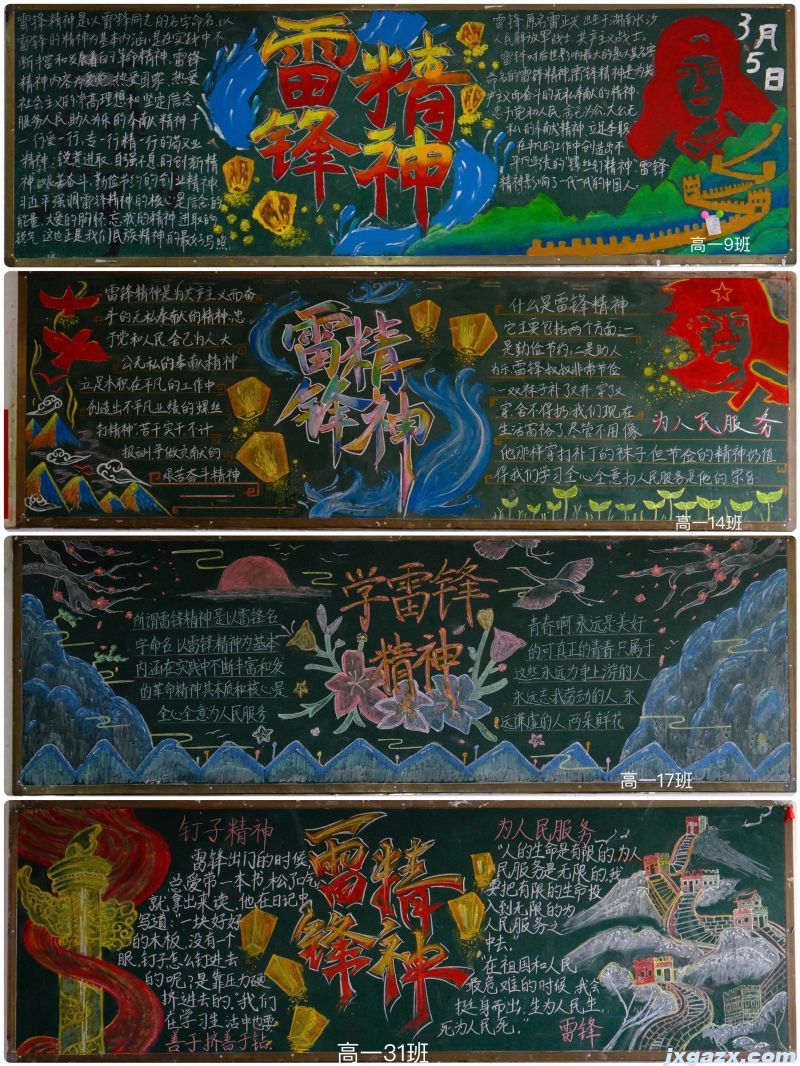 雷锋精神是以雷锋同志的名字命名,以
雷锋的精神为基本内涵,是在实践中不
断丰富和发展着的革命精神.雷锋
精神内容为爱党,热爱国家,热爱
社会主义的崇高理想和坚定信念.
服务人民,助人为乐的奉献精神.干
一行爱一行,专一行精一行的敬业
精神.锐意进取,自强不息的创新精
神.艰苦奋斗,勤俭节约的创业精神
习近平强调雷锋精神的核心是信念的
能量.大爱的胸怀.忘我的精神.进取的
锐气.这也正是我们民族精神的最好写照.
雷锋精神
雷锋,原名雷正兴,出生于湖南长沙
人民解放军战士,共产主义战士.
雷锋对后世影响最大的是以其名字
命名的雷锋精神.雷锋精神是为共
产主义而奋斗的无私奉献的精神.
忠于党和人民.舍己为公.大公无
私的奉献精神.立足本职.
在平凡的工作中创造出不
平凡业绩的"螺丝钉精神"雷锋
精神影响了一代一代的中国人.
3月
5日
高一9班
雷锋精神是为共产主义而奋
斗的无私奉献的精神,忠
于党和人民,舍己为人,大
公无私的奉献精神
立足本职在平凡的工作中
创造出不平凡业绩的螺丝
钉精神:苦干实干不计
报酬争做贡献的
艰苦奋斗精神
雷锋精神
什么是雷锋精神
它主要包括两个方面:一
是勤俭节约,二是助人
为乐.雷锋叔叔非常节俭
一双袜子补了又补,穿了又
穿舍不得扔.我们现在
生活富裕了,尽管不用像
他那样穿打补丁的袜子,但节俭的精神仍值
得我们学习.全心全意为人民服务是他的宗旨
为人民服务
高一14班
所谓雷锋精神是以雷锋名
字命名,以雷锋精神为基本
内涵在实践中不断丰富和发
的革命精神其本质和核心是
全心全意为人民服务
学雷锋
精神
青春啊,永远是美好
的,可真正的青春,只属于
这些永远力争上游的人
永远忘我劳动的人,永
远谦虚的人 两朵鲜花
高一17班
钉子精神
雷锋出门的时候,
总爱带一本书,松了口气
就拿出来读.他在日记中
写道:"一块好好
的木板,没有一个
眼,钉子怎么钉进去
的呢?是靠压力硬
挤进去的."我们
在学习生活中也要
善于挤善于钻.
雷锋精神
为人民服务
"人的生命是有限的,为人
民服务是无限的,我
要把有限的生命投
入到无限的为
人民服务之
中去."
"在祖国和人民
最危难的时候,我会
挺身而出,生为人民生,
死为人民死."
雷锋
高一31班
jxgazx.com